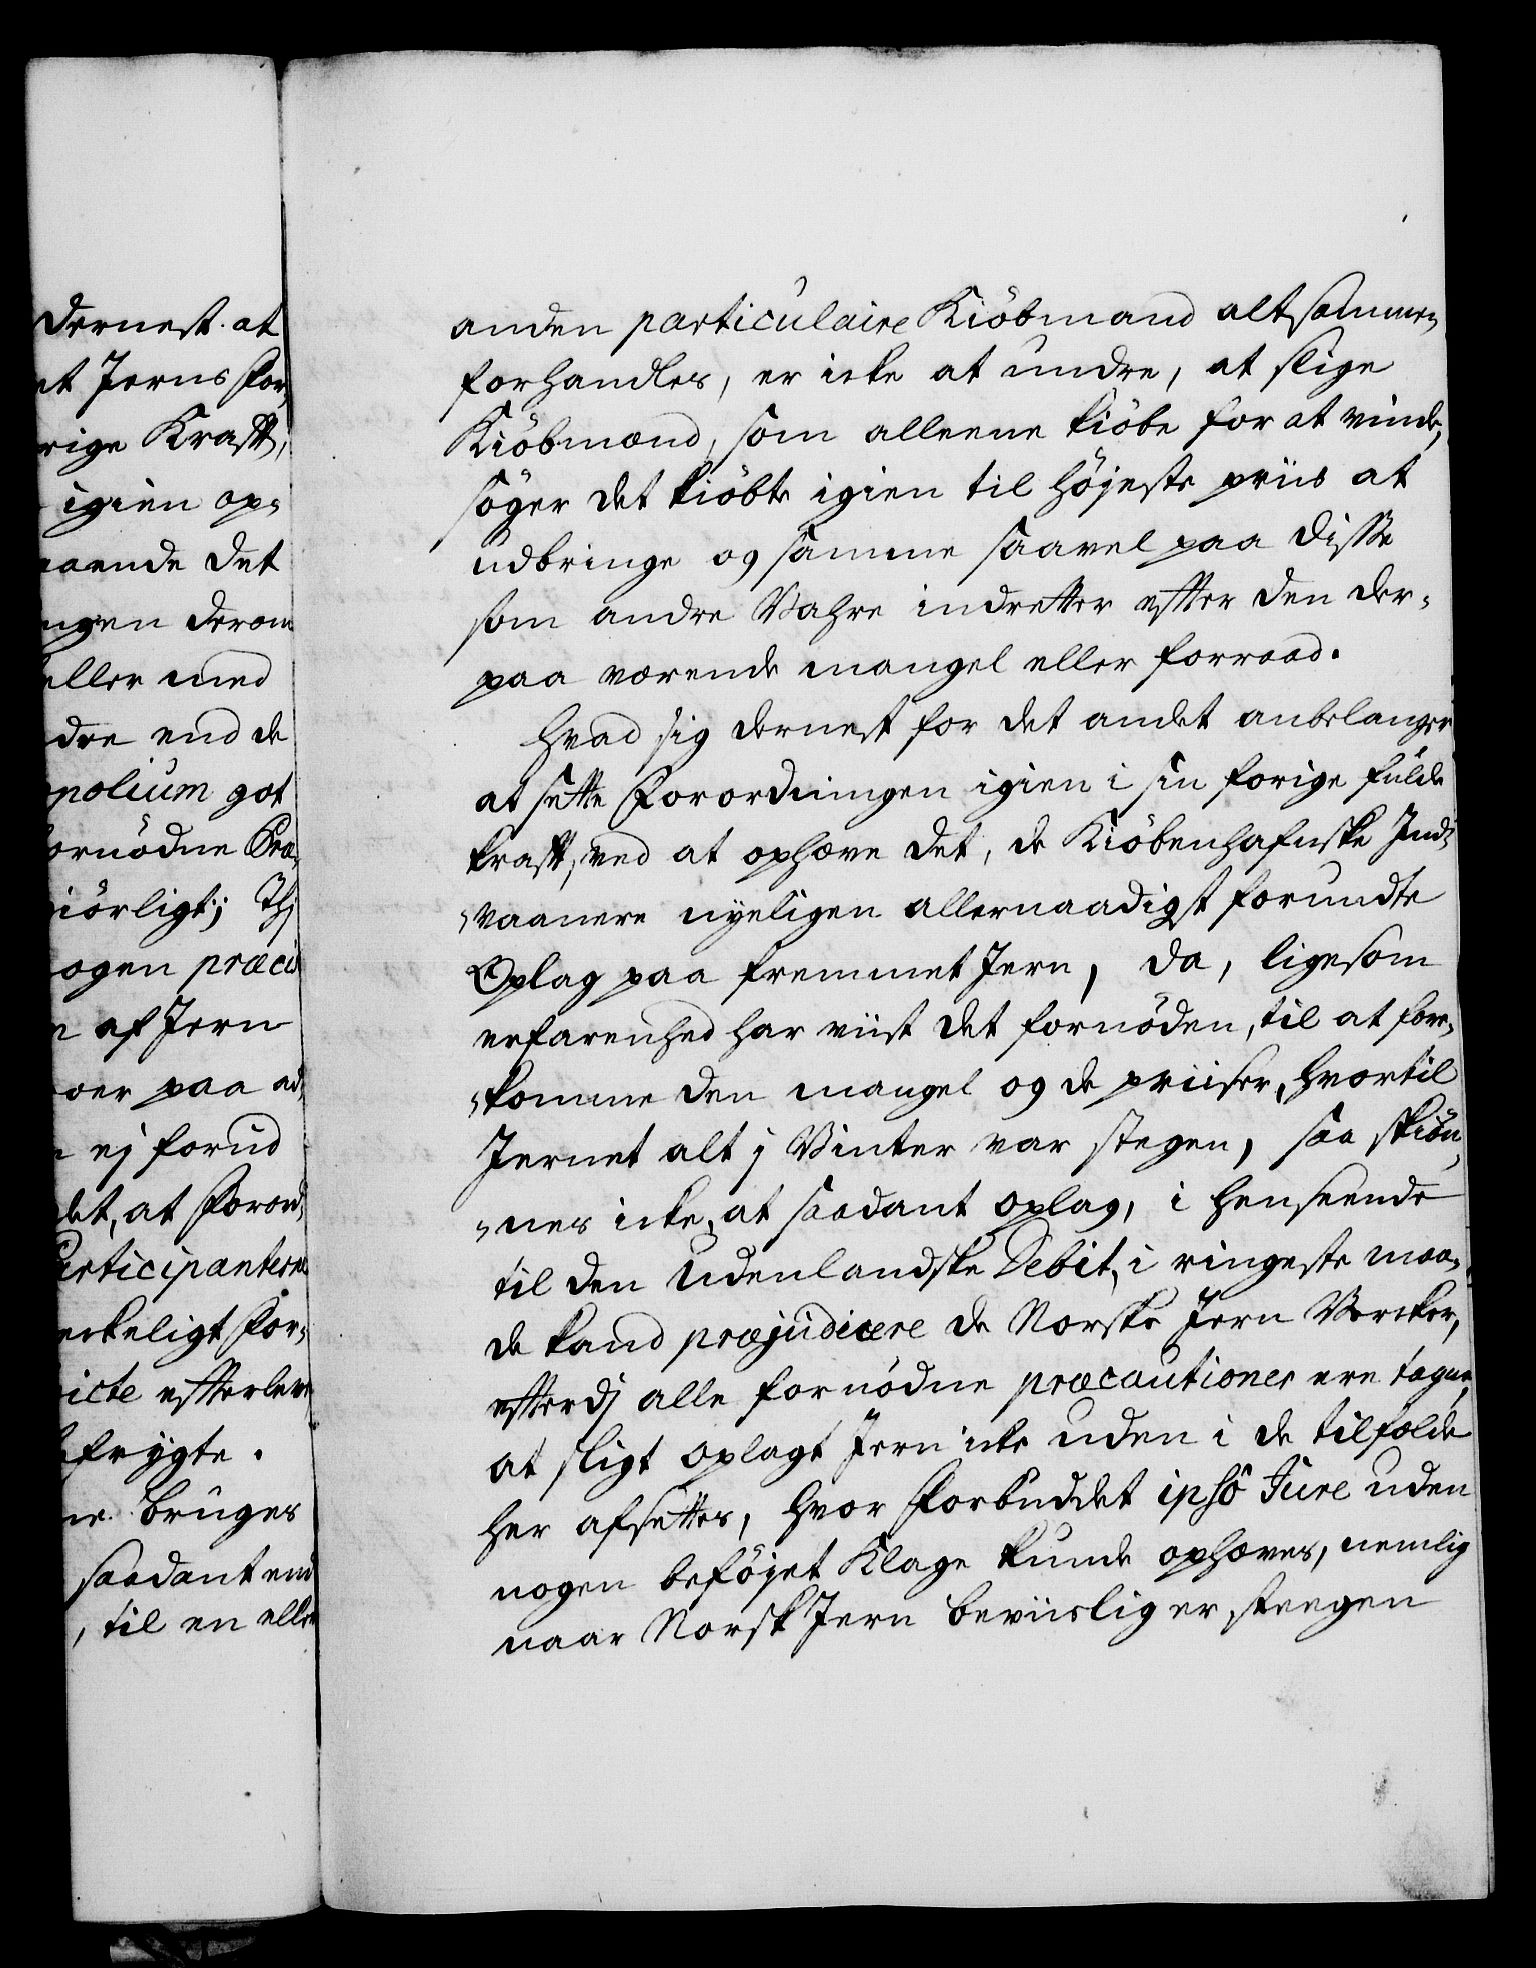 dernest at
et Jerns for,
rige Krafft,
igien op„
aaende det
ngen derom
eller med
dre end de
polium got
ornödne Præ,
iörligt; Thj
ogen præci
af Jern
oer paa ad,
ej forud
det, at Forord,
Participanterne
erkeligt For„
icte effterleve
frygte.
bruges
saadant end
, til en eller
anden particulaire Kiöbmand altsammen
forhandles, er icke at undre, at slige
Kiöbmænd, som alleene kiöbe for at vinde,
söger det kiöbte igien til höjeste priis at
udbringe og samme saavel paa disse
som andre Vahre indretter effter den der„
paa værende mangel eller forraad.
Hvad sig dernest for det andet anbelanger
at sette Forordningen igien i sin forige fulde
krafft, ved at ophæve det, de Kiöbenhafnske Ind„
„vaanere nyeligen allernaadigst forundte
Oplag paa fremmet Jern, da, ligesom
erfarenhed har viist det fornöden, til at fore„
„komme den mangel og de priiser, hvortil
Jernet alt j Vinter var stegen, saa skiön„
„nes icke, at saadant oplag, i henseende
til den Udenlandske Debit, i ringeste maa„
de kand præjudicere de Norske Jern Vercker,
effterdj alle fornödne præcautioner ere tagne,
at sligt oplagt Jern icke uden i de tilfælde
her afsettes, hvor Forbuddet ipsô Jure uden
nogen beföjet Klage kunde ophæves, nemlig
naar Norsk Jern beviislig er steegen